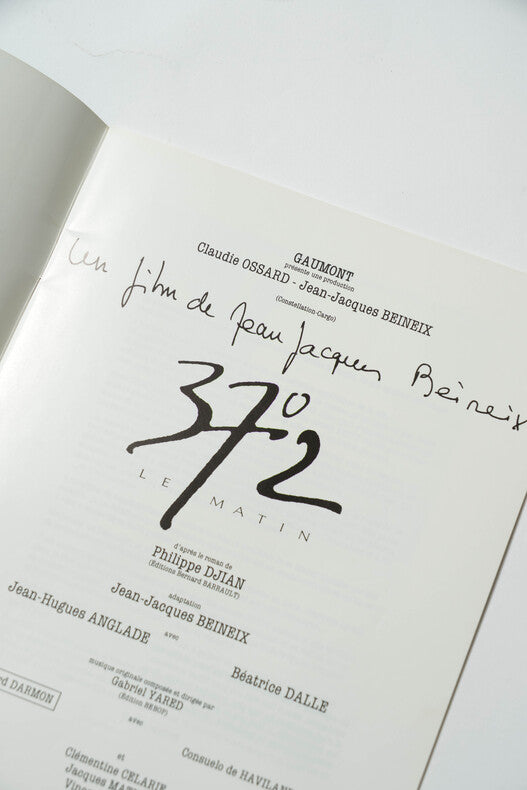 GAUMONT
présente une production
Claudie OSSARD - Jean-Jacques BEINEIX
(Constellation-Cargo)
Un film de Jean Jacques Beineix
37°2
LE MATIN
d'après le roman de
Philippe DJIAN
(Éditions Bernard BARRAULT)
adaptation
Jean-Jacques BEINEIX
avec
Jean-Hugues ANGLADE
Béatrice DALLE
musique originale composée et dirigée par
Gabriel YARED
(Édition BEBOP)
avec
DARMON
Consuelo de
et
Clémentine
Jacques